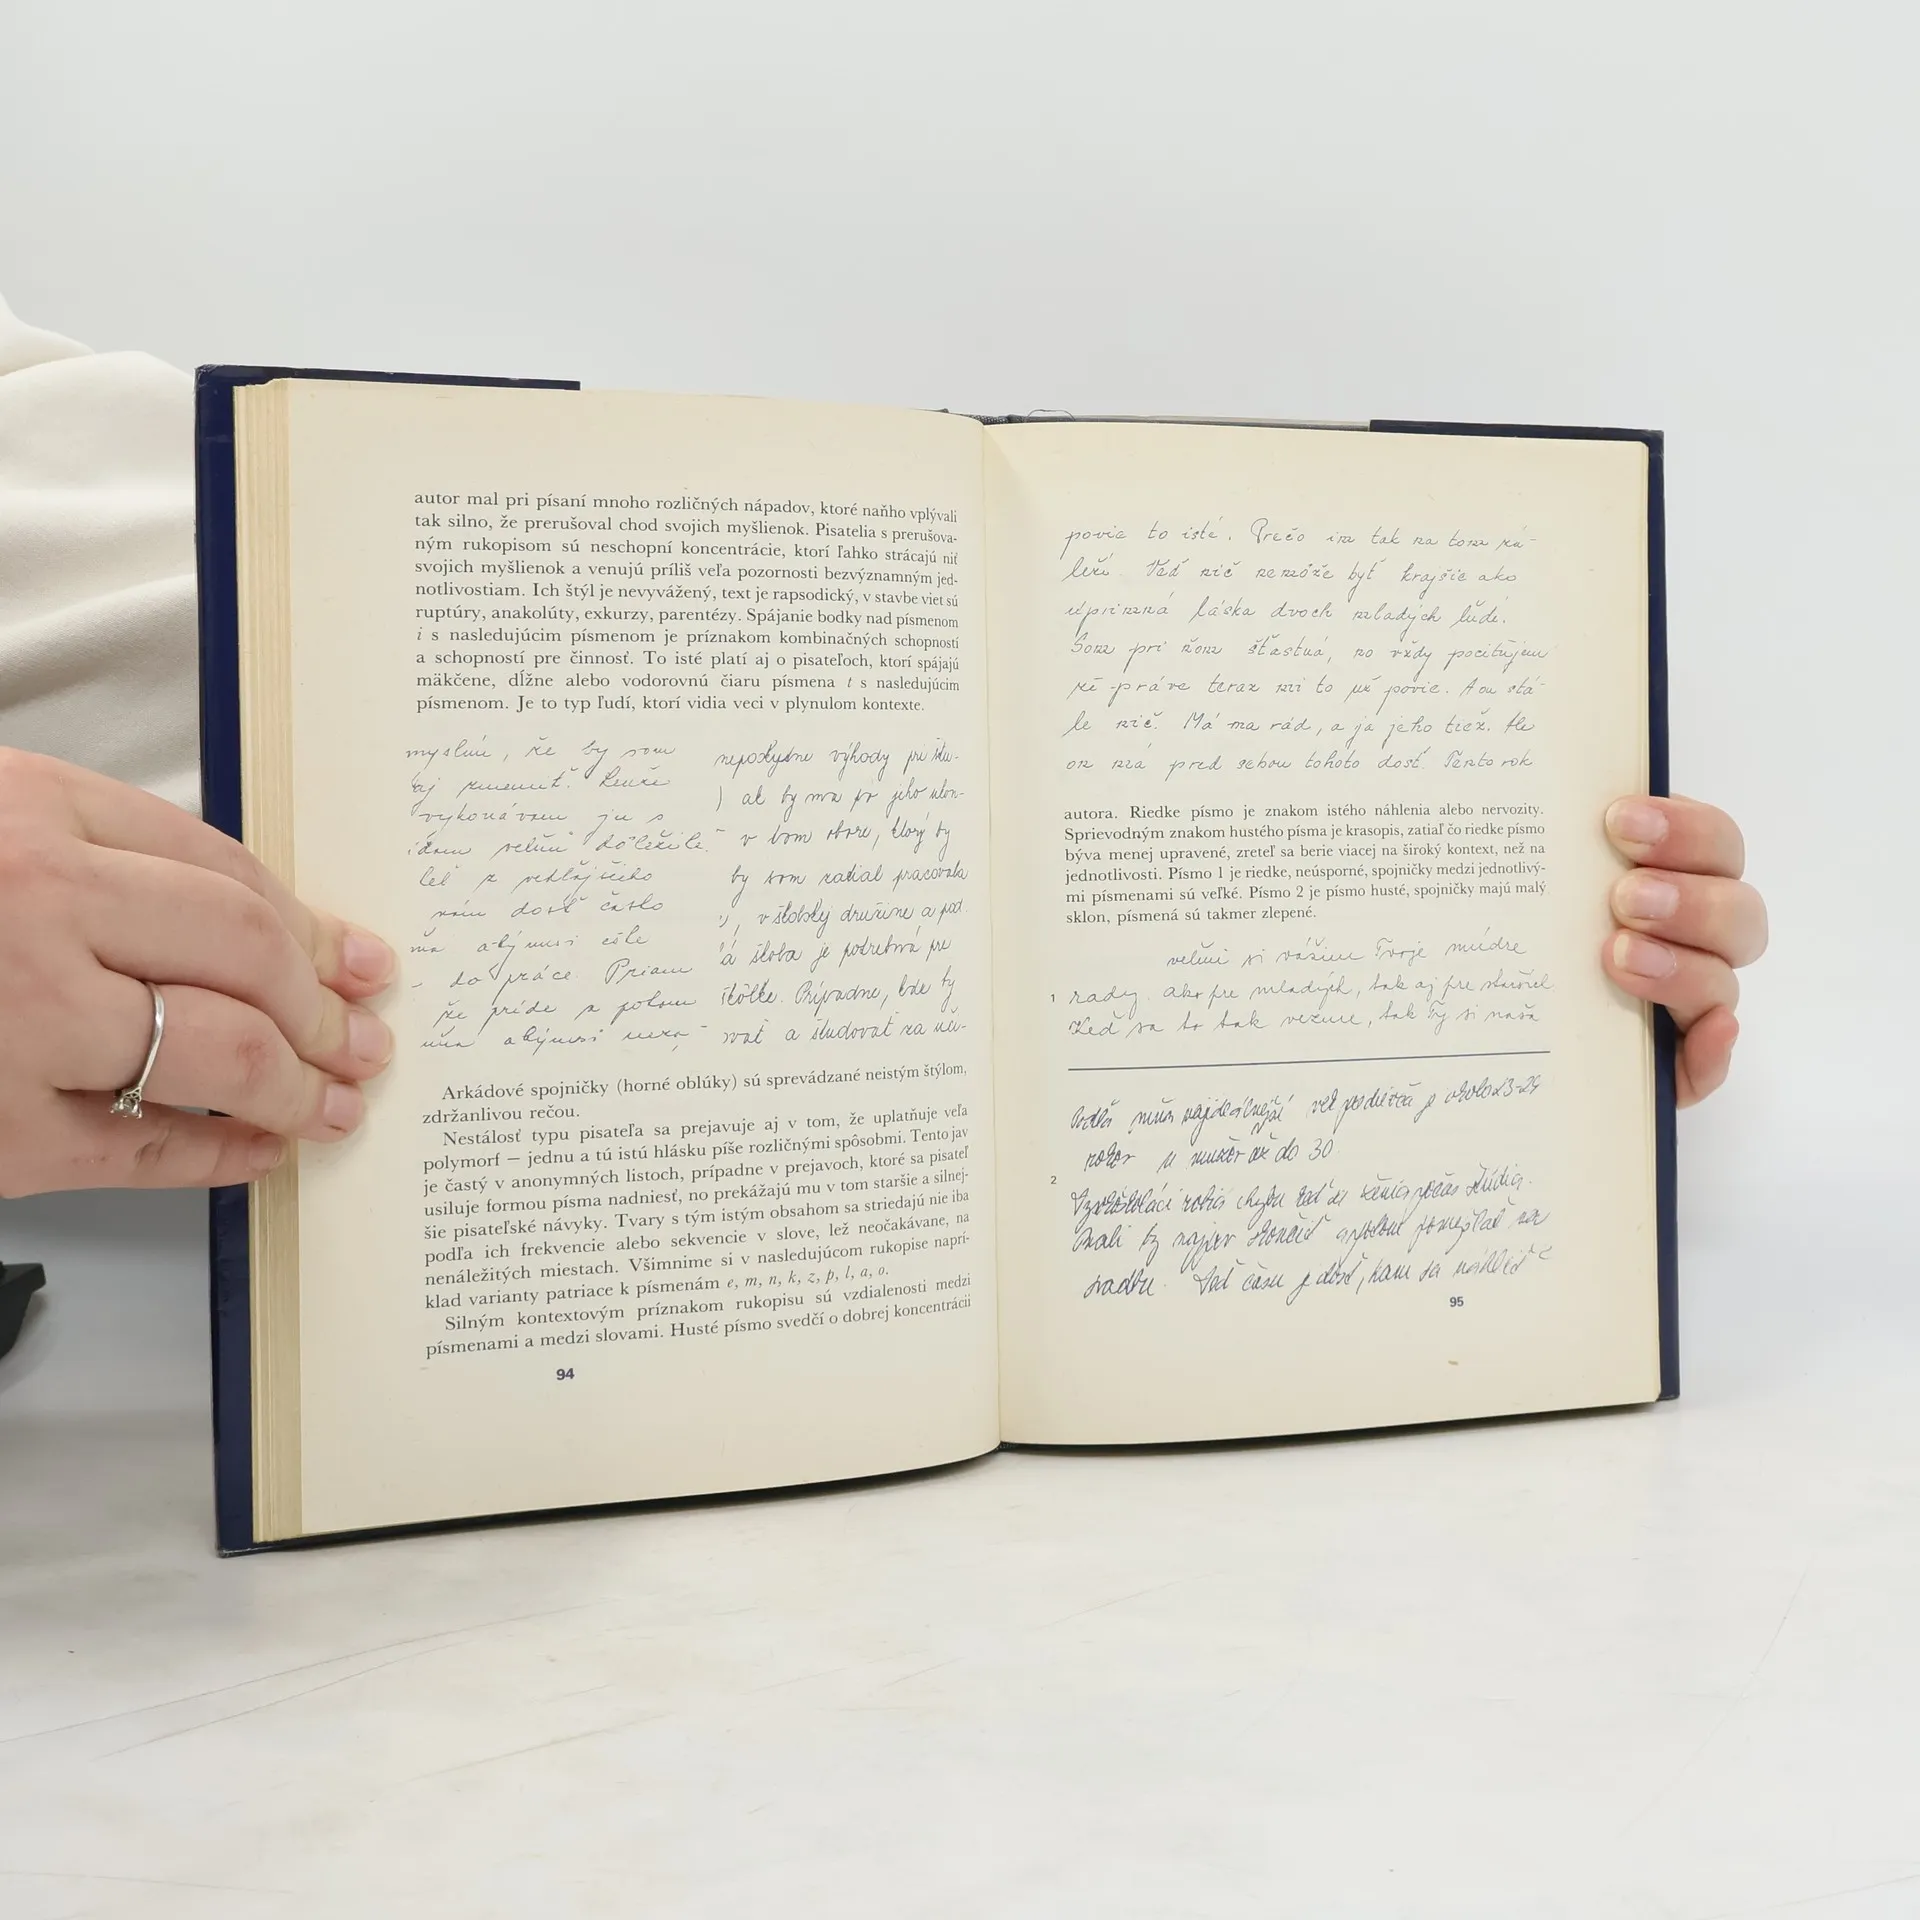 autor mal pri písaní mnoho rozličných nápadov, ktoré naňho vplývali
tak silno, že prerušoval chod svojich myšlienok. Pisatelia s prerušova-
ným rukopisom sú neschopní koncentrácie, ktorí ľahko strácajú niť
svojich myšlienok a venujú príliš veľa pozornosti bezvýznamným jed-
notlivostiam. Ich štýl je nevyvážený, text je rapsodický, v stavbe viet sú
ruptúry, anakolúty, exkurzy, parentézy. Spájanie bodky nad písmenom
i s nasledujúcim písmenom je príznakom kombinačných schopností
a schopností pre činnosť. To isté platí aj o pisateľoch, ktorí spájajú
mäkčene, dĺžne alebo vodorovnú čiaru písmena t s nasledujúcim
písmenom. Je to typ ľudí, ktorí vidia veci v plynulom kontexte.
myslím, že by som
aj zmeniť.
vykonávam ju s
veľmi dôležité.
z vedľajšieho
nám dosť často
abymusi ešte
do práce. Priam
že príde a potom
abymusi
neposkytne výhody pri štu-
) ak by ma po jeho ukon-
v tom obore, ktorý by
by som radšal pracovala
v školskej družine a pod.
á škola je potrebná pre
škôlke. Prípadne, kde by
svať a študovať za uči-
Arkádové spojničky (horné oblúky) sú sprevádzané neistým štýlom,
zdržanlivou rečou.
Nestálosť typu pisateľa sa prejavuje aj v tom, že uplatňuje veľa
polymorf — jednu a tú istú hlásku píše rozličnými spôsobmi. Tento jav
je častý v anonymných listoch, prípadne v prejavoch, ktoré sa pisateľ
usiluje formou písma nadniesť, no prekážajú mu v tom staršie a silnej-
šie pisateľské návyky. Tvary s tým istým obsahom sa striedajú nie iba
podľa ich frekvencie alebo sekvencie v slove, lež neočakávane, na
nenáležitých miestach. Všimnime si v nasledujúcom rukopise naprí-
klad varianty patriace k písmenám e, m, n, k, z, p, l, a, o.
Silným kontextovým príznakom rukopisu sú vzdialenosti medzi
písmenami a medzi slovami. Husté písmo svedčí o dobrej koncentrácii
94
povie to isté. Prečo im tak na tom zá-
leží. Veď nič nemôže byť krajšie ako
úprimná láska dvoch mladých ľudí.
Som pri ňom šťastná, no vždy pociťujem
že práve teraz mi to už povie. A on stá-
le nič. Má ma rád, a ja jeho tiež. Ale
on má pred sebou tohoto dosť. Tento rok
autora. Riedke písmo je znakom istého náhlenia alebo nervozity.
Sprievodným znakom hustého písma je krasopis, zatiaľ čo riedke písmo
býva menej upravené, zreteľ sa berie viacej na široký kontext, než na
jednotlivosti. Písmo 1 je riedke, neúsporné, spojničky medzi jednotlivý-
mi písmenami sú veľké. Písmo 2 je písmo husté, spojničky majú malý
sklon, písmená sú takmer zlepené.
veľmi si vážime Tvoje múdre
1 rady. ako pre mladých, tak aj pre starších
Keď sa to tak vezme, tak Ty si naša
Podľa mňa najideálnejší vek pre dievča je okolo 23-24
rokov u mužov až do 30
2
Vysokoškoláci robia chybu keď sa ženia počas štúdia.
Mali by najprv skončiť a potom pomýšľať na
svadbu. Veď času je dosť, kam sa náhliť
95